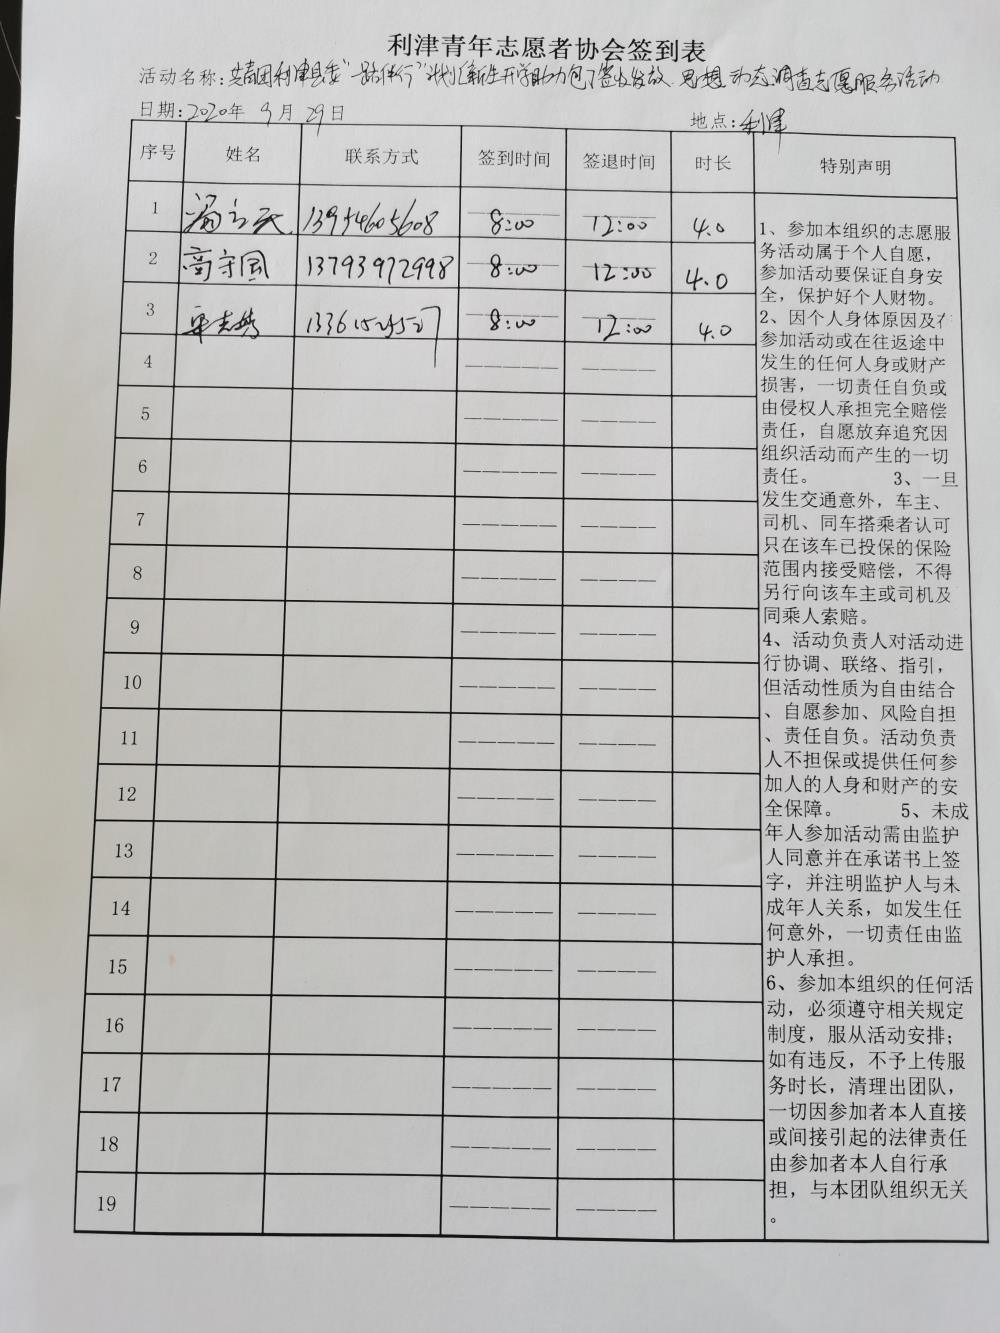 利津青年志愿者协会签到表
活动名称:共青团利津县委"一路伴行"计划新生开学助力包签收发放、思想动态调查志愿服务活动
日期:2020年 9月 29日 地点:利津
序号 姓名 联系方式 签到时间 签退时间 时长 特别声明
1 13954605608 8:00 12:00 4.0
2 高守国 13793972998 8:00 12:00 4.0
3 8:00 12:00 4.0
4 ————— ————
5 ————— ————
6 ————— ————
7 ————— ————
8 ————— ————
9 ————— ————
10 ————— ————
11 ————— ————
12 ————— ————
13 ————— ————
14 ————— ————
15 ————— ————
16 ————— ————
17 ————— ————
18 ————— ————
19 ————— ————
1、参加本组织的志愿服
务活动属于个人自愿,
参加活动要保证自身安
全,保护好个人财物。
2、因个人身体原因及在
参加活动或在往返途中
发生的任何人身或财产
损害,一切责任自负或
由侵权人承担完全赔偿
责任,自愿放弃追究因
组织活动而产生的一切
责任。 3、一旦
发生交通意外,车主、
司机、同车搭乘者认可
只在该车已投保的保险
范围内接受赔偿,不得
另行向该车主或司机及
同乘人索赔。
4、活动负责人对活动进
行协调、联络、指引,
但活动性质为自由结合
、自愿参加、风险自担
、责任自负。活动负责
人不担保或提供任何参
加人的人身和财产的安
全保障。 5、未成
年人参加活动需由监护
人同意并在承诺书上签
字,并注明监护人与未
成年人关系,如发生任
何意外,一切责任由监
护人承担。
6、参加本组织的任何活
动,必须遵守相关规定
制度,服从活动安排;
如有违反,不予上传服
务时长,清理出团队,
一切因参加者本人直接
或间接引起的法律责任
由参加者本人自行承
担,与本团队组织无关
。